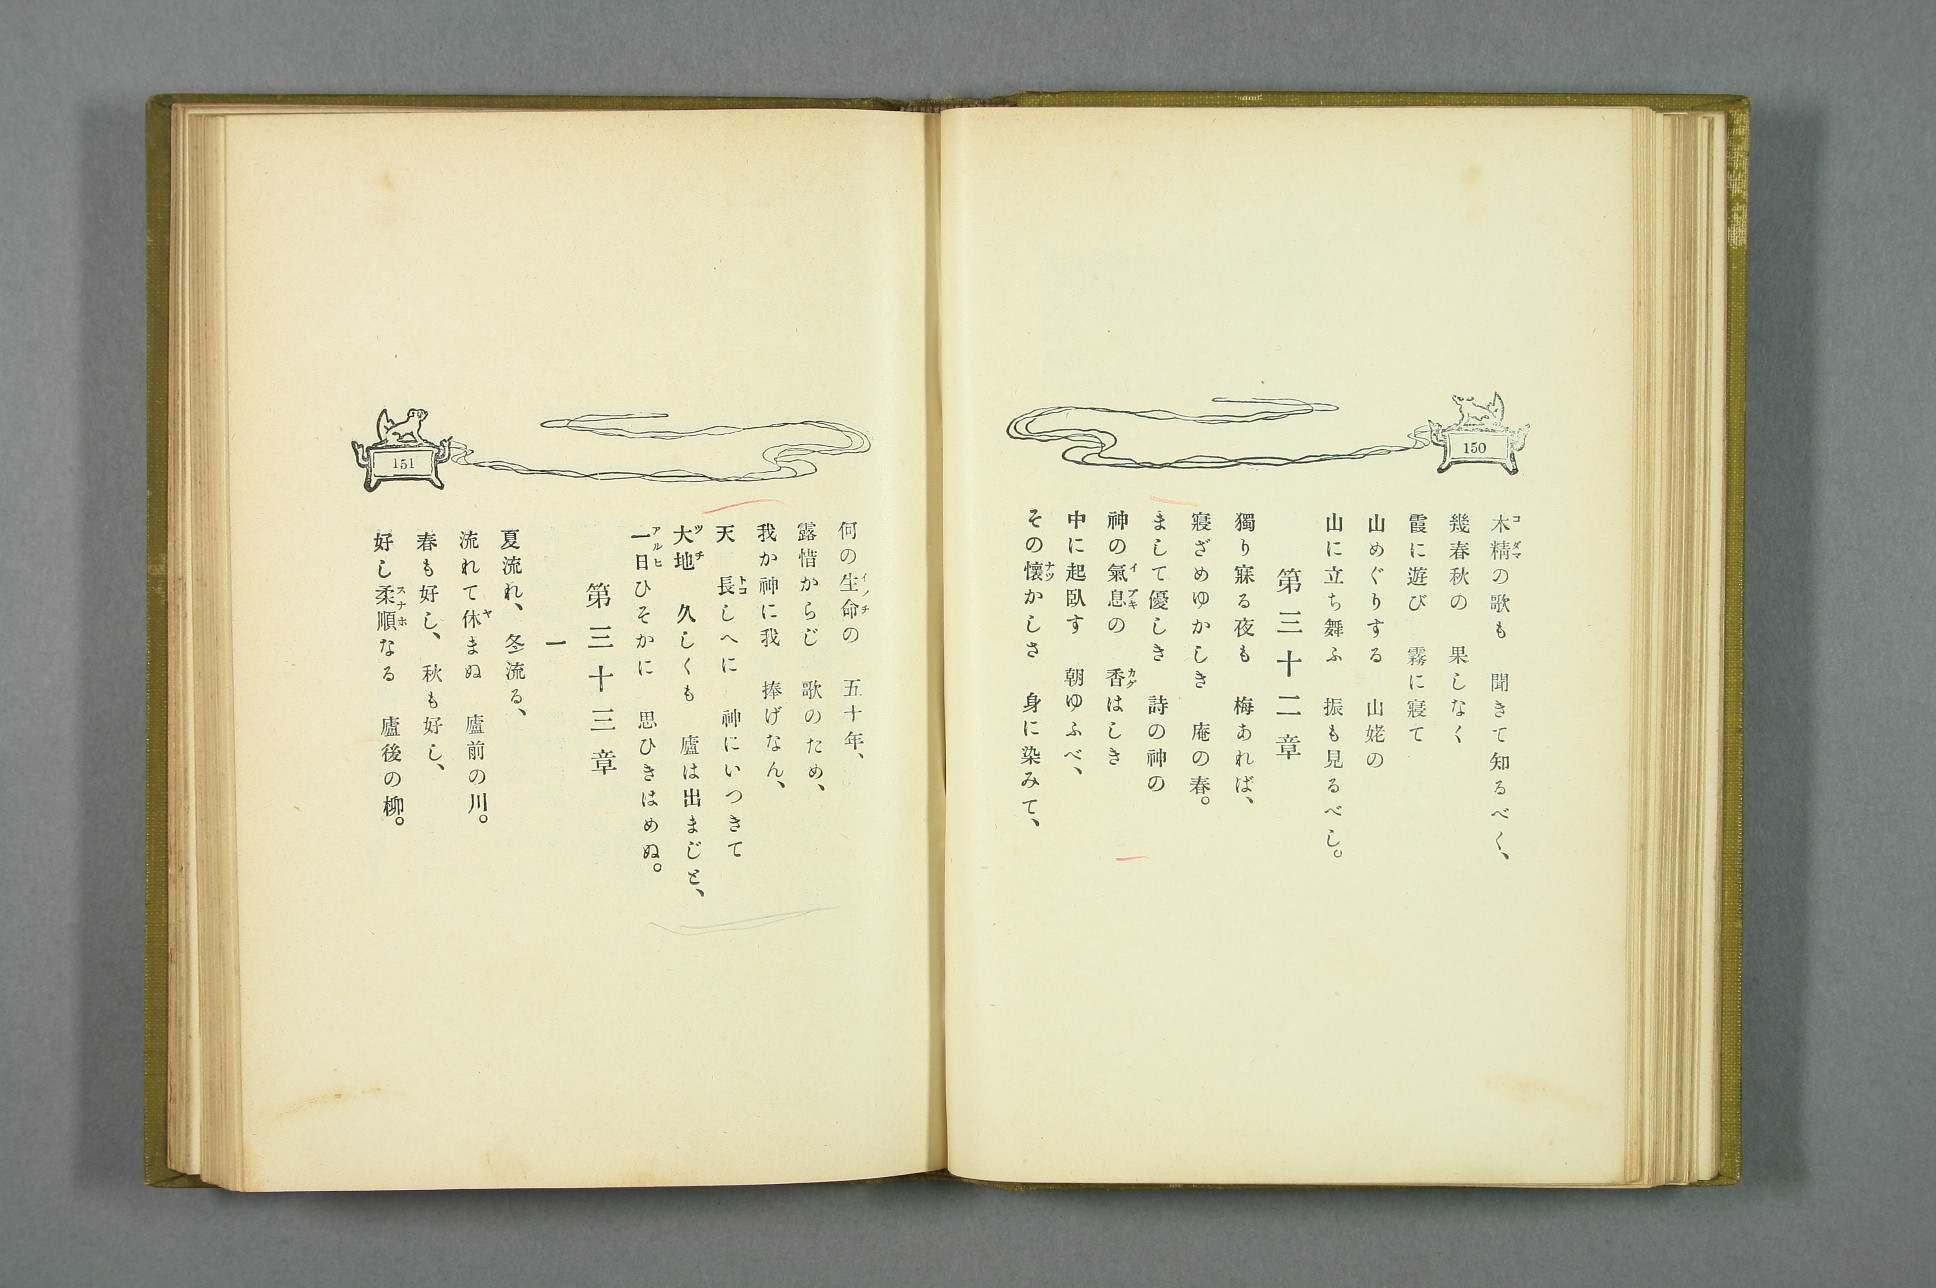 150
木精の歌も　聞きて知るべく、
幾春秋の　果しなく
霞に遊び　霧に寢て
山めぐりする　山姥の
山に立ち舞ふ　振も見るべし。
第三十二章
獨り寐る夜も　梅あれば、
寢ざめゆかしき　庵の春。
まして優しき　詩の神の
神の氣息の　香はしき
中に起臥す　朝ゆふべ、
その懷かしさ　身に染みて、
151
何の生命の　五十年、
露惜からじ　歌のため、
我か神に我　捧げなん、
天　長しへに　神にいつきて
大地　久しくも　廬は出まじと、
一日ひそかに　思ひきはめぬ。
第三十三章
一
夏流れ、冬流る、
流れて休まぬ　廬前の川。
春も好し、秋も好し、
好し柔順なる　廬後の柳。